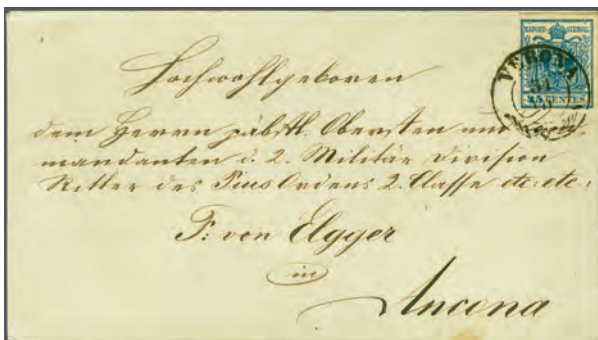 KKPOST-STEMPEL
45 CENTES
VERONA
31
Hochwohlgeboren
dem Herrn päbstl. Obersten und Com-
mandanten d. 2. Militär Division
Ritter des Pius Ordens 2. Classe etc: etc:
F: von Elgger
in
Ancona